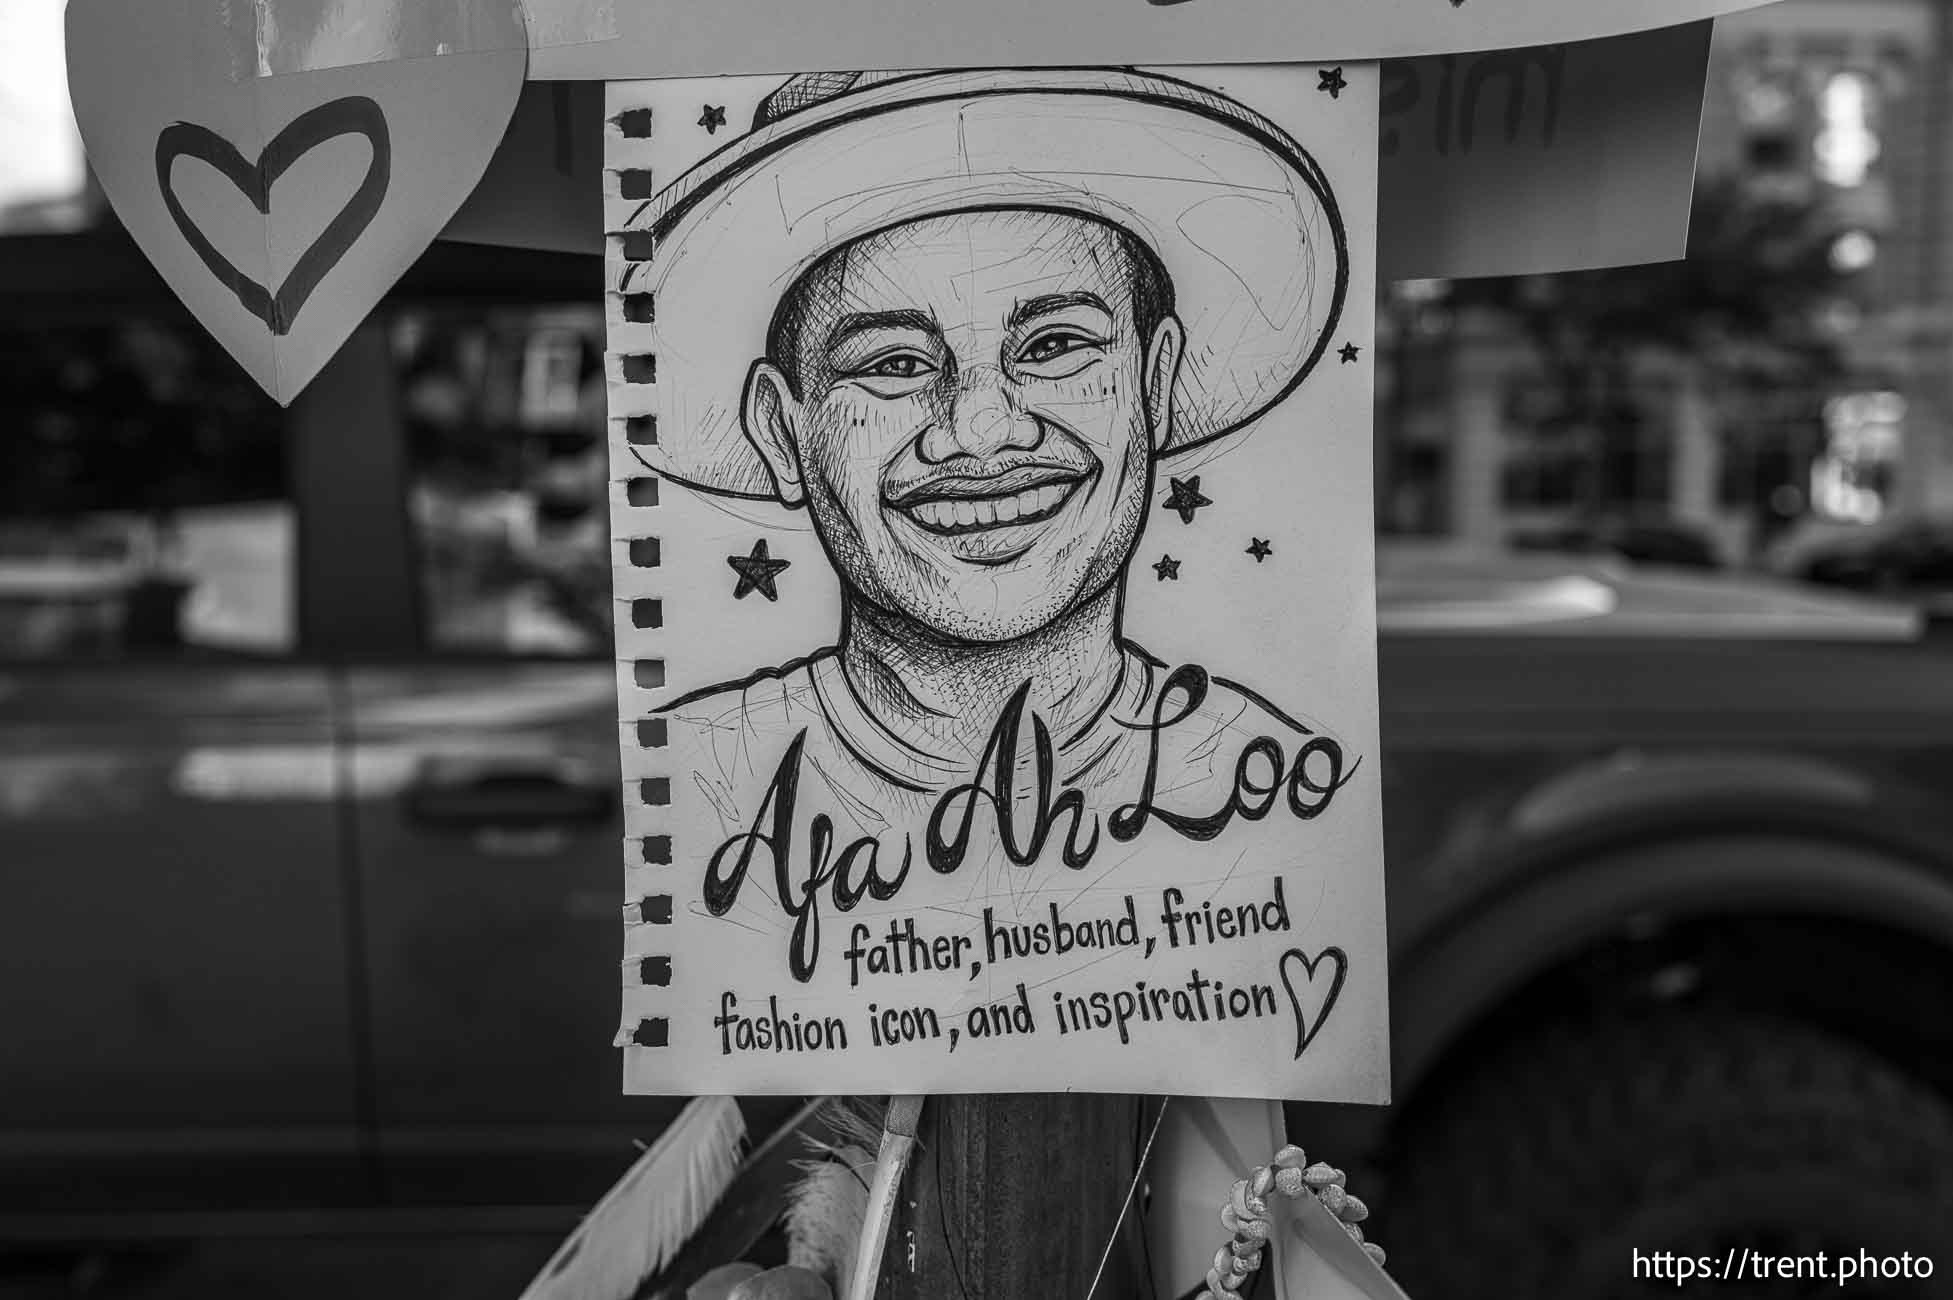 Afa Ah Loo
father, husband, friend
fashion icon, and inspiration
https://trent.photo